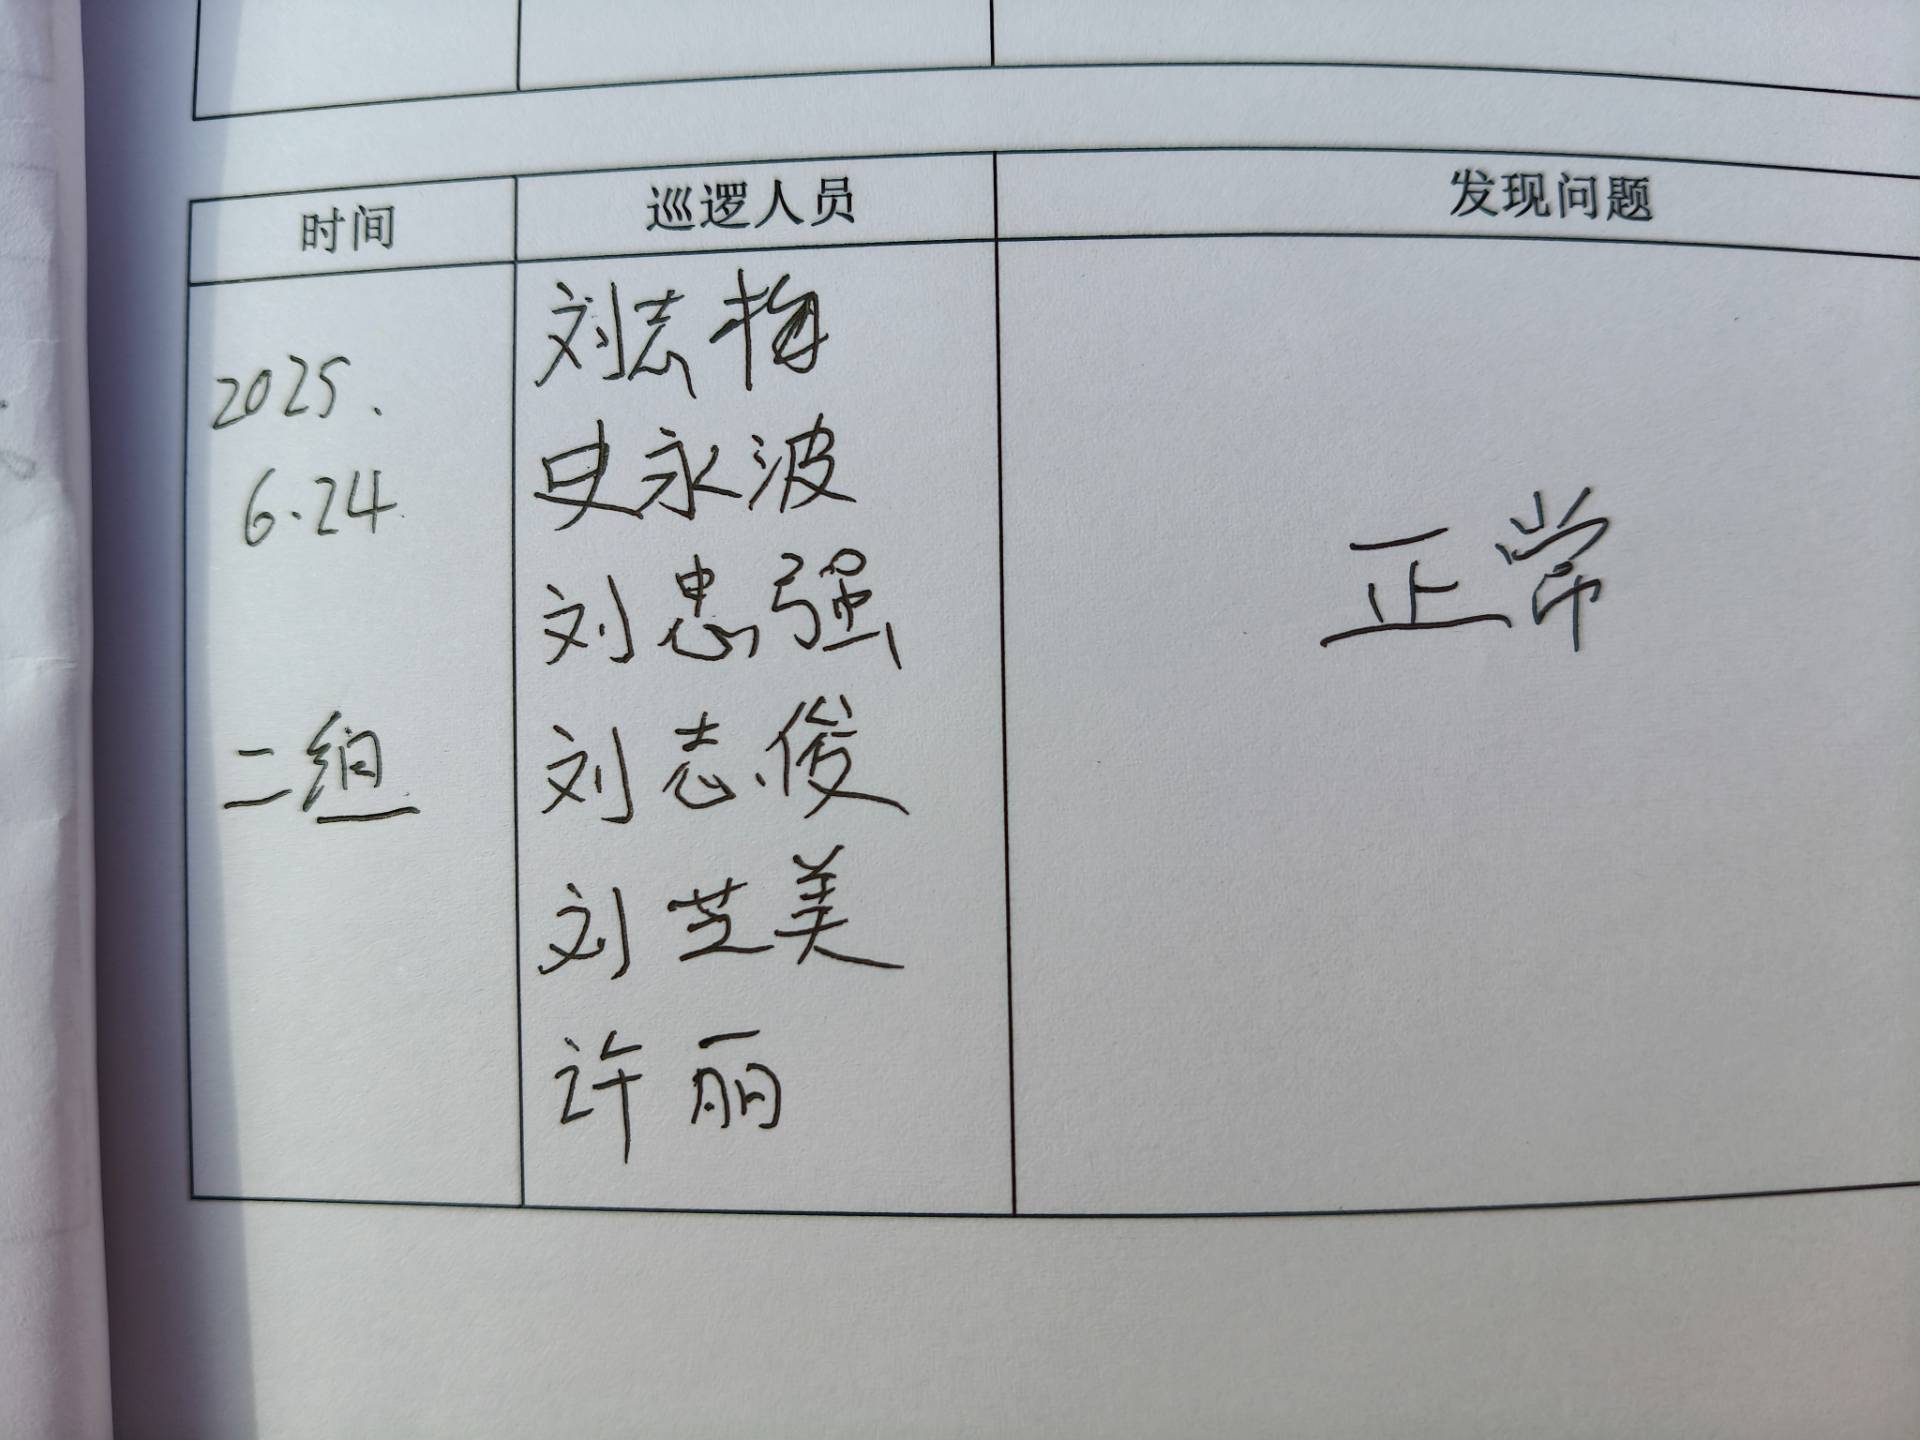 时间 巡逻人员 发现问题
2025.
6.24
二组
刘志梅
史永波
刘忠强
刘志俊
刘芝美
许丽
正常